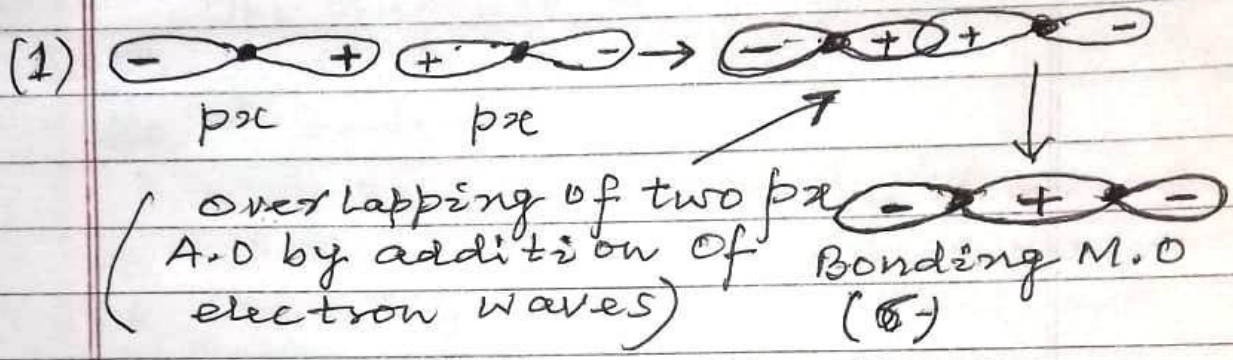 (1) - + + - → - + + -
px px
(overlapping of two px
A.O by addition of
electron waves)
- + -
Bonding M.O
(σ)